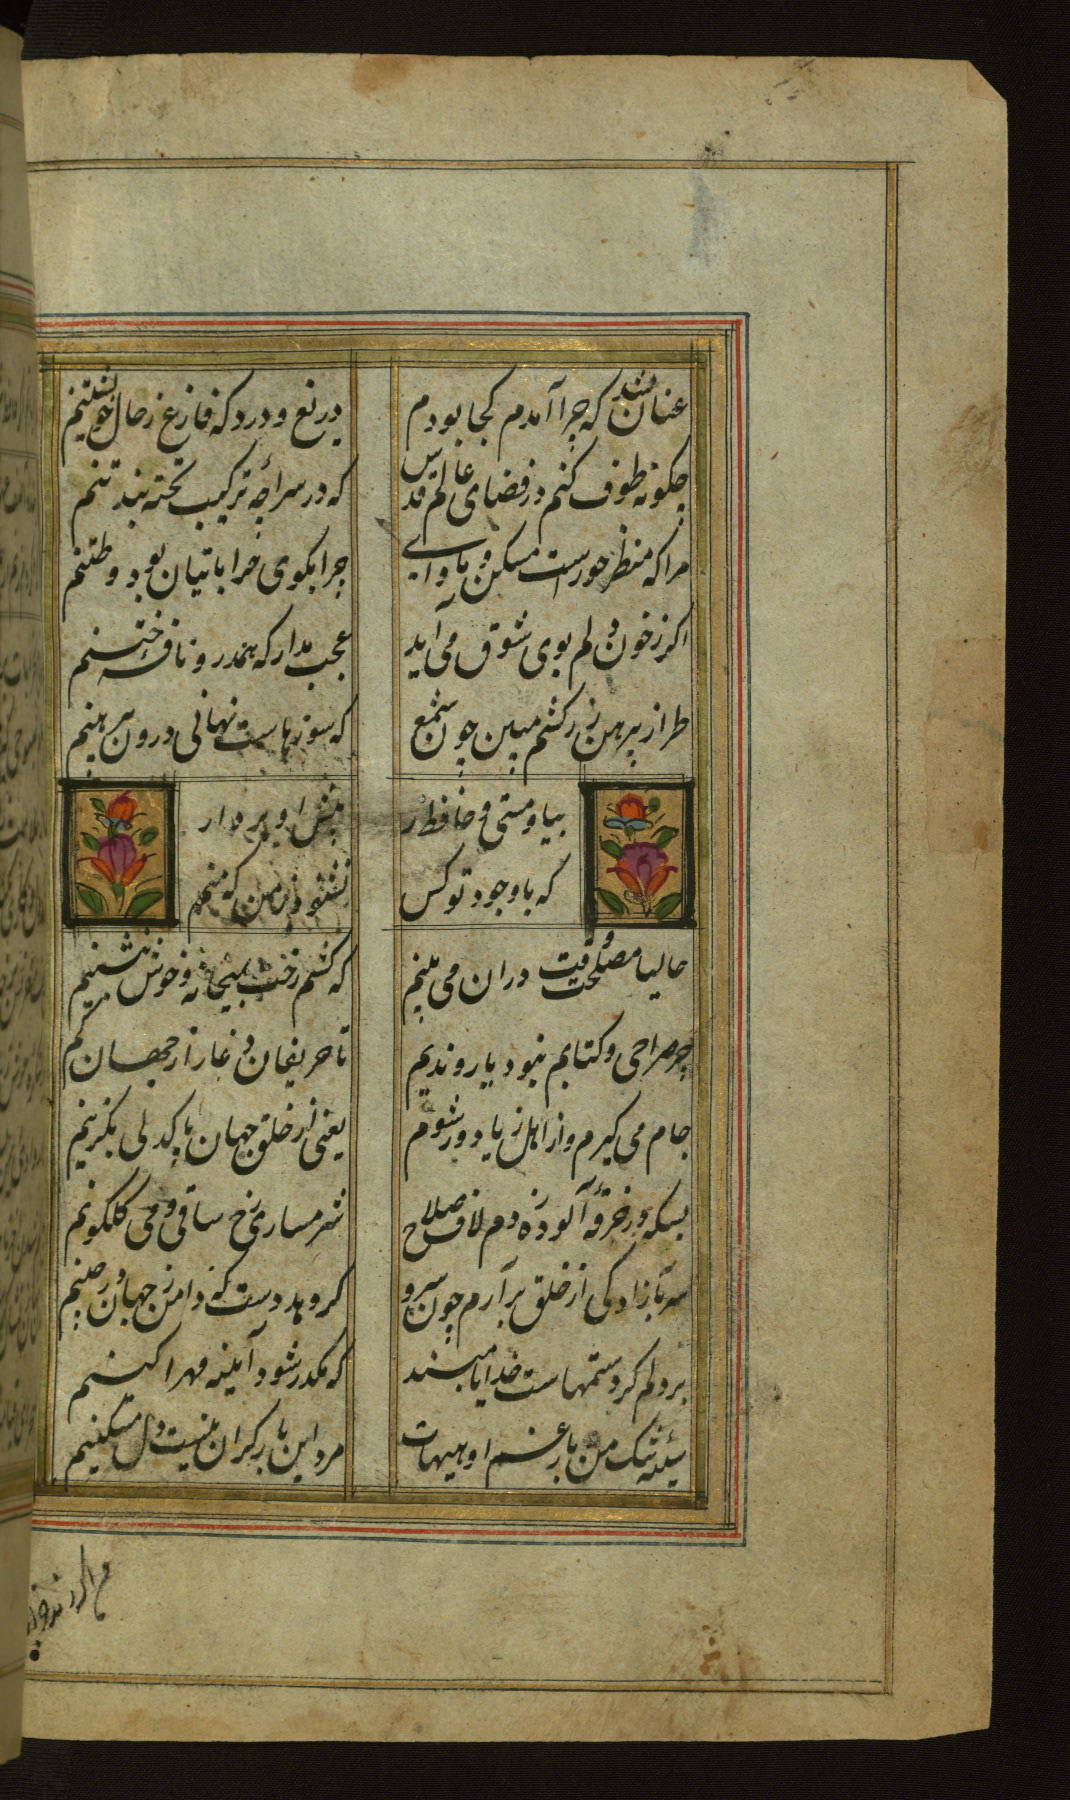 عنان نشد که چرا آمدم کجا بودم
دریغ و درد که فارغ ز حال خویشتنم
چکونه طوف کنم در فضای عالم قدس
که در سراچه ترکیب تخته بند تنم
مرا که منظر حورست مسکن و ماوای
چرا بکوی خراباتیان بود وطنم
اکر ز خون دلم بوی شوق می آید
عجب مدار که همدرد نافه ختنم
طراز پیرهن زرکشم مبین چون شمع
که سوزهاست نهانی درون پیرهنم
بیا و هستی حافظ ز
پیش او بردار
که با وجود تو کس
نشنود ز من که منم
حالیا مصلحت وقت دران می بینم
که کشم رخت بمیخانه و خوش بنشینم
جز صراحی و کتابم نبود یار و ندیم
تا حریفان دغا را ز جهان کم بینم
جام می کیرم و از اهل ریا دور شوم
یعنی از خلق جهان پاکدلی بکزینم
بسکه در خرقه آلوده زدم لاف صلاح
شرمسار رخ ساقی و می کلکونم
سر بآزادکی از خلق برآرم چون سرو
کر دهد دست که دامن ز جهان درچینم
بر دلم کرد ستمهاست خدایا مپسند
که مکدر شود آیینه مهرآیینم
سینه تنک من و بار غم او هیهات
مرد این بار کران نیست دل مسکینم
من اکر رند